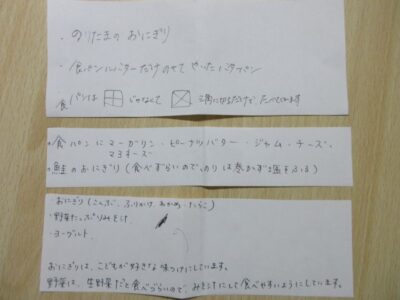 ・のりたまの おにぎり
・食パンにバターだけのせて やいたバタパン
食パンは じゃなくて 三角に切るだけで、たべています
・食パンにマーガリン・ピーナツバター・ジャム・チーズ、
マヨネーズ
・鮭のおにぎり (食べずらいので、のりは巻かず塩をふる)
・おにぎり (こんぶ、ふりかけ、わかめ、たらこ)
・野菜たっぷりみそ汁
・ヨーグルト
おにぎりは、こどもが好きな味つけにしています。
野菜は、生野菜だと食べづらいので、みそ汁にして食べやすいようにしています。